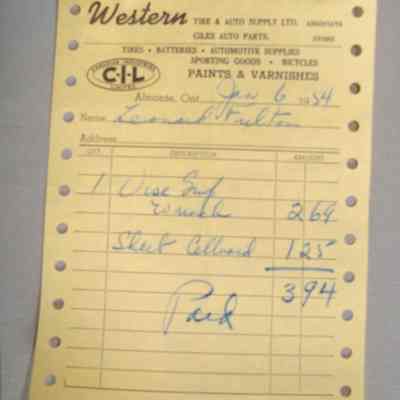 Western TIRE & AUTO SUPPLY LTD. ASSOCIATE STORE
GILES AUTO PARTS.
TIRES • BATTERIES • AUTOMOTIVE SUPPLIES
SPORTING GOODS • BICYCLES
PAINTS & VARNISHES
CANADIAN INDUSTRIES
C-I-L
LIMITED
Almonte, Ont. Jan 6 1954
Name Leonard Fulton
Address
QTY. DESCRIPTION AMOUNT
1 Vise Grip
Wrench 2 69
Sheet 1 25
3 94
Paid